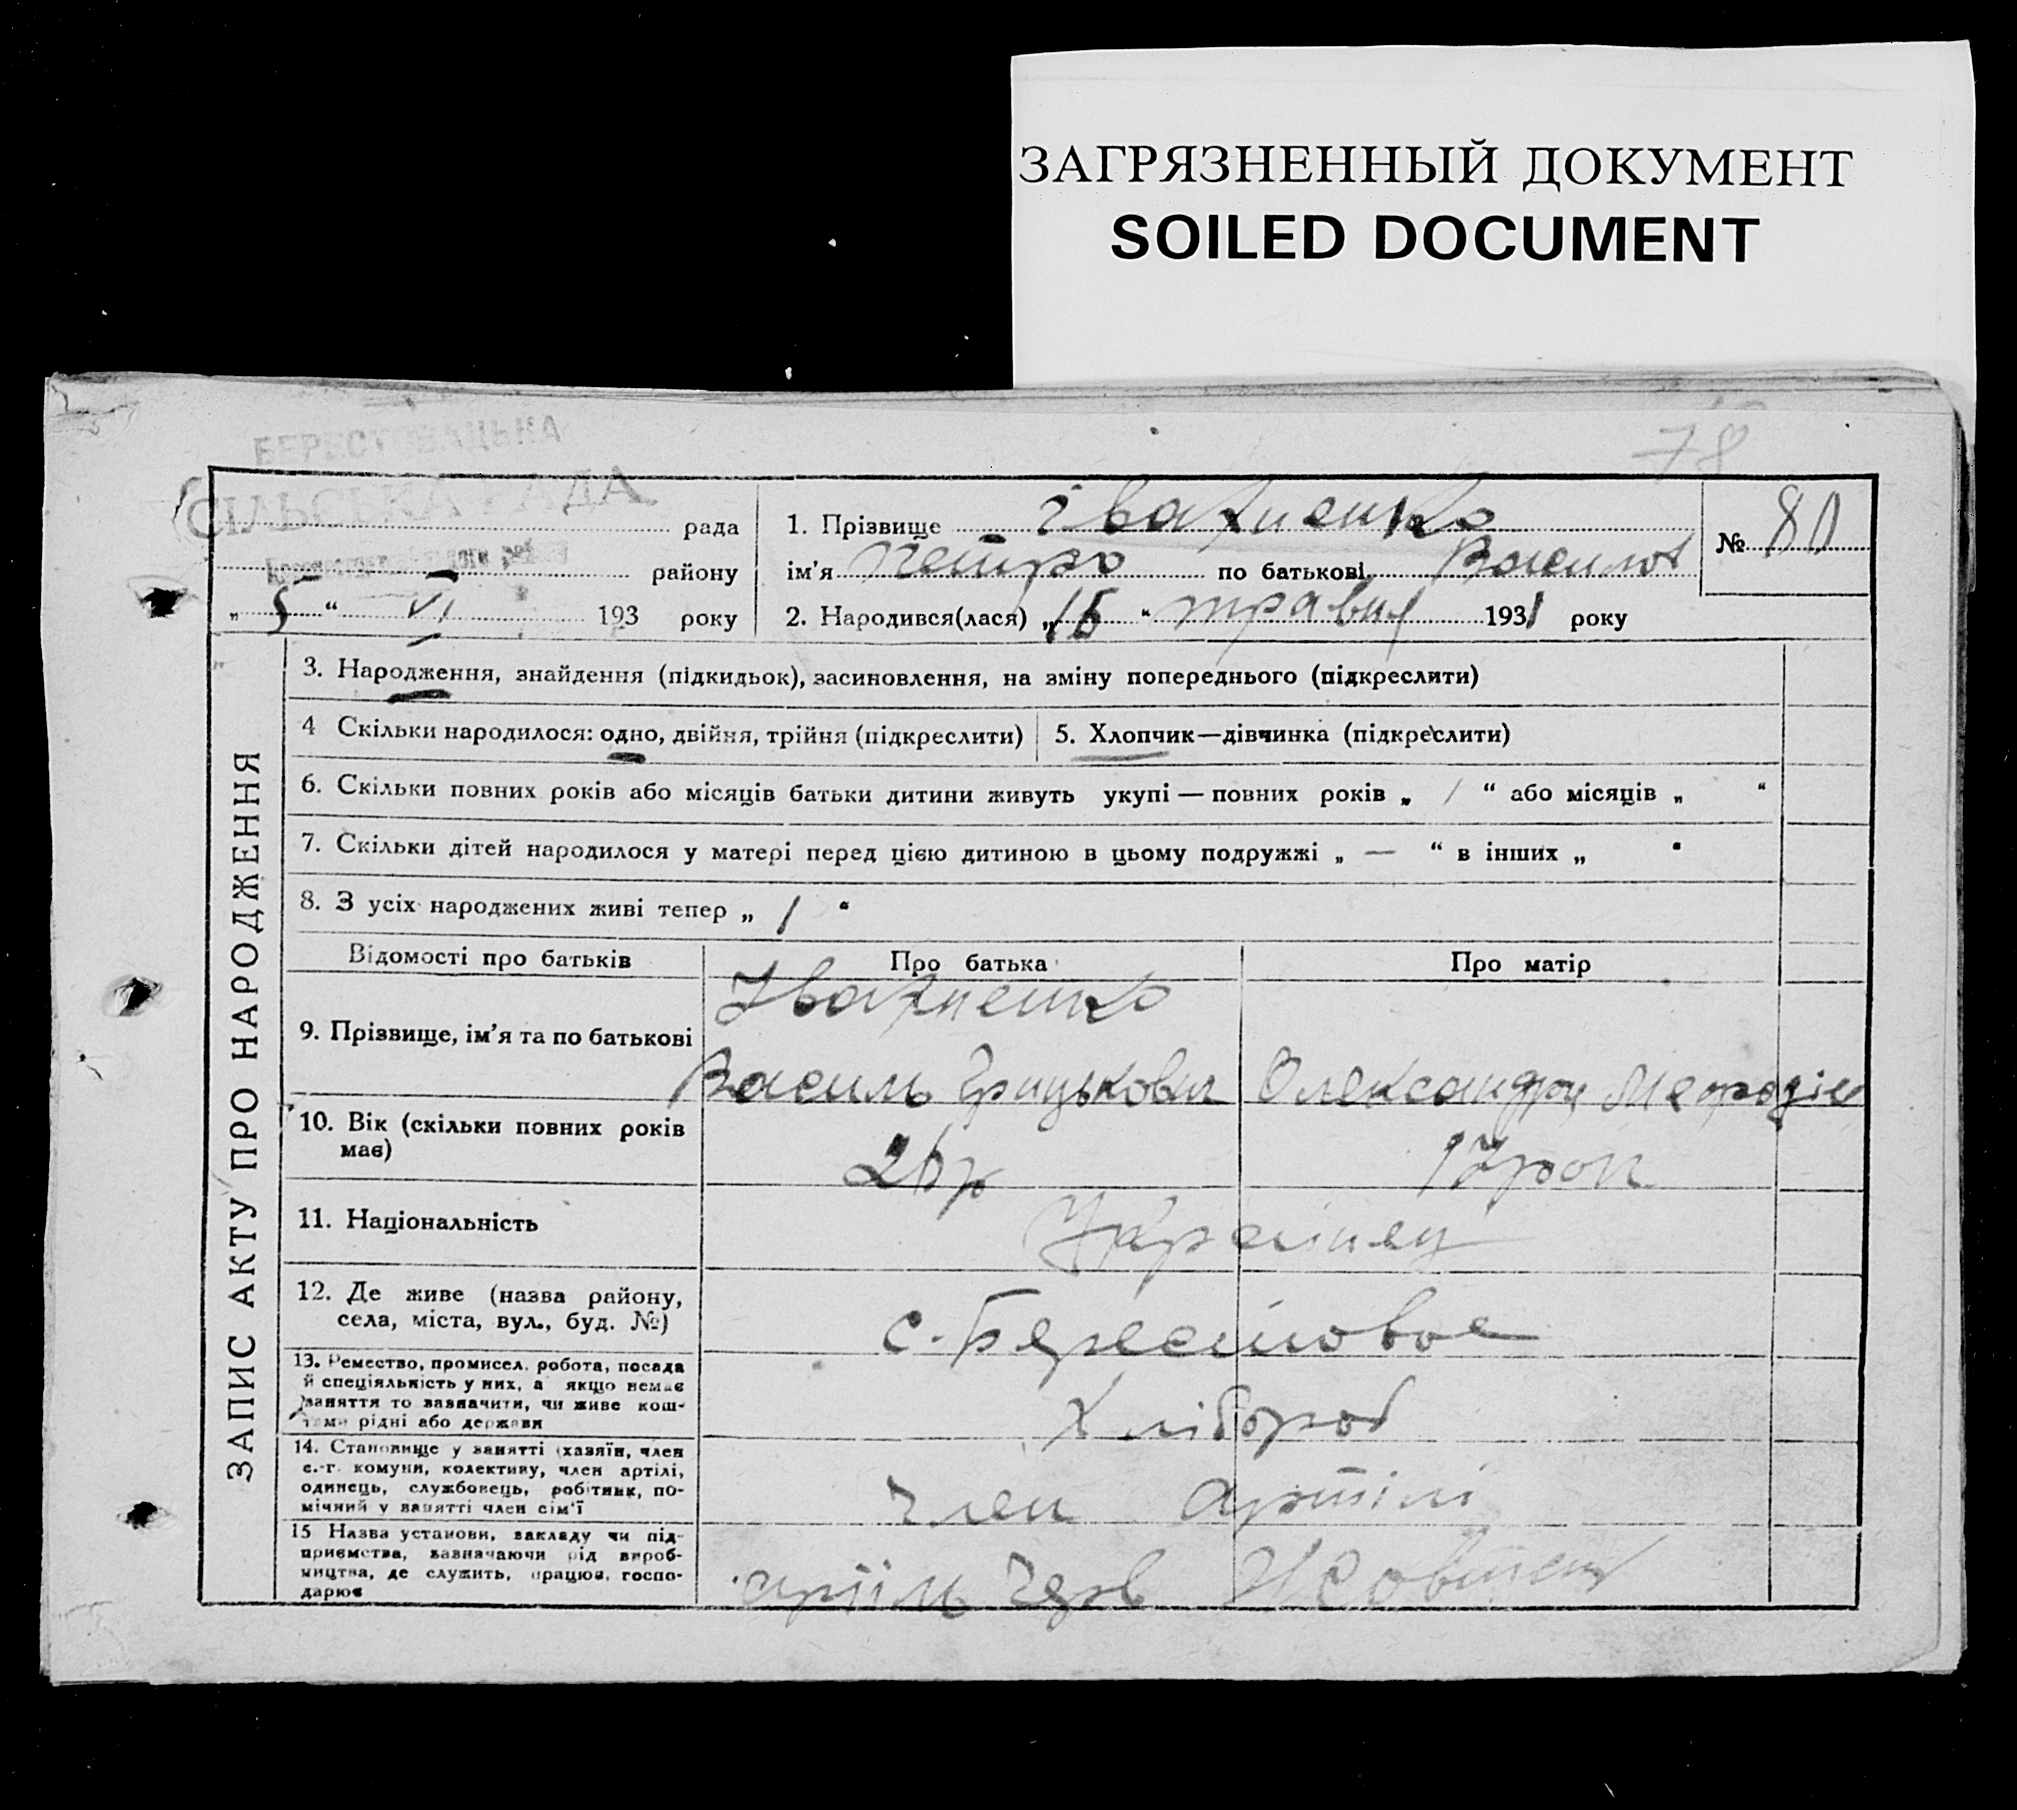 ЗАГРЯЗНЕННЫЙ ДОКУМЕНТ
SOILED DOCUMENT
78
СІЛЬСЬКА РАДА
рада
району
„ 5 “ VI 193 року
1. Прізвище Івахненко
ім'я Петро по батькові Васильов
№ 80
2. Народився(лася) „ 15 “ травня 1931 року
ЗАПИС АКТУ ПРО НАРОДЖЕННЯ
3. Народження, знайдення (підкидьок), засиновлення, на зміну попереднього (підкреслити)
4 Скільки народилося: одно, двійня, трійня (підкреслити) 5. Хлопчик—дівчинка (підкреслити)
6. Скільки повних років або місяців батьки дитини живуть укупі — повних років „ 1 “ або місяців „ “
7. Скільки дітей народилося у матері перед цією дитиною в цьому подружжі „ — “ в інших „ “
8. З усіх народжених живі тепер „ 1 “
Відомості про батьків Про батька Про матір
9. Прізвище, ім'я та по батькові
Івахненко
Василь Грицькович Олександра
10. Вік (скільки повних років
має)
26р 17рок
11. Національність
Українец
12. Де живе (назва району,
села, міста, вул., буд. №)
с. Берестовое
13. Ремество, промисел, робота, посада
й спеціяльність у них, а якщо немає
заняття то зазначити, чи живе кош-
тами рідні або держави
Хлібороб
14. Становище у занятті (хазяїн, член
с.-г. комуни, колективу, член артілі,
одинець, службовець, робітник, по-
мічний у занятті член сім'ї
Член артілі
15 Назва установи, закладу чи під-
приємства, зазначаючи рід вироб-
ництва, де служить, працює, госпо-
дарює
артіль Черв Жовтень